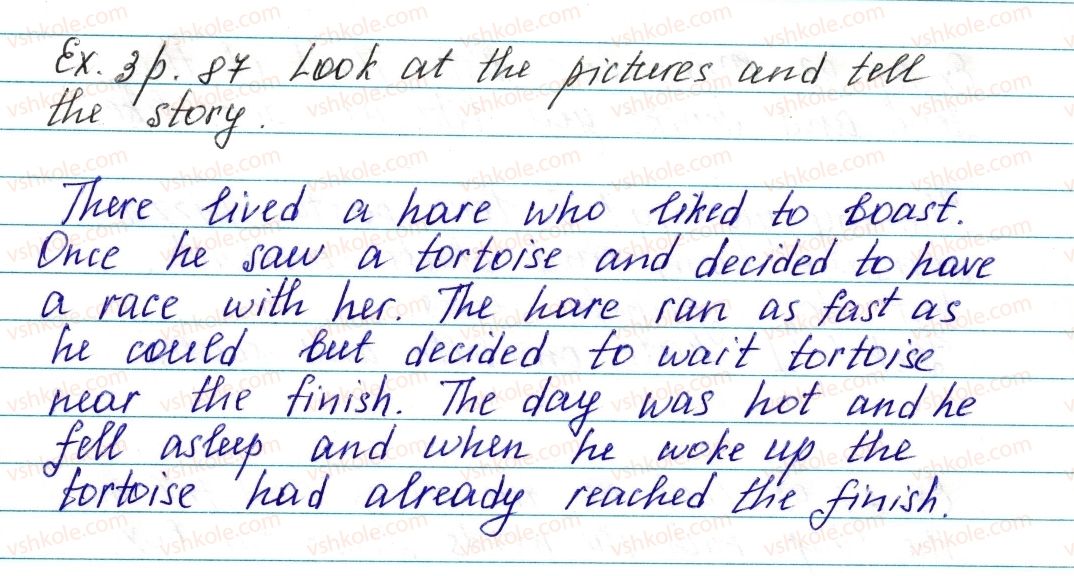 Ex. 3 p. 87 Look at the pictures and tell
the story.
There lived a hare who liked to boast.
Once he saw a tortoise and decided to have
a race with her. The hare ran as fast as
he could but decided to wait tortoise
near the finish. The day was hot and he
fell asleep and when he woke up the
tortoise had already reached the finish.
vshkole.com